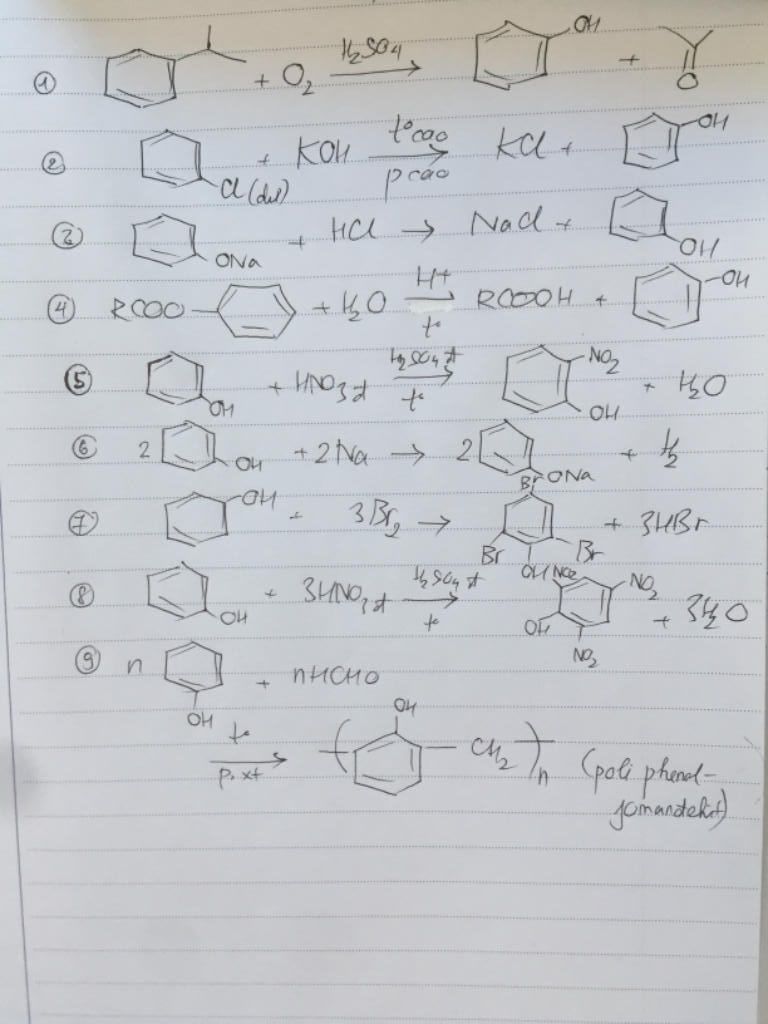 ① + O₂ H₂SO₄ → OH + O
② Cl (dư) + KOH t° cao p cao → KCl + OH
③ ONa + HCl → NaCl + OH
④ RCOO + H₂O H+ t° → RCOOH + OH
⑤ OH + HNO₃ đ H₂SO₄ đ t° → NO₂ OH + H₂O
⑥ 2 OH + 2Na → 2 ONa + H₂
⑦ OH + 3Br₂ → Br Br Br OH + 3HBr
⑧ OH + 3HNO₃ đ H₂SO₄ đ t° → NO₂ NO₂ OH NO₂ + 3H₂O
⑨ n OH + nHCHO
t° p, xt → ( OH CH₂ )n (poli phenol-
fomandehit)